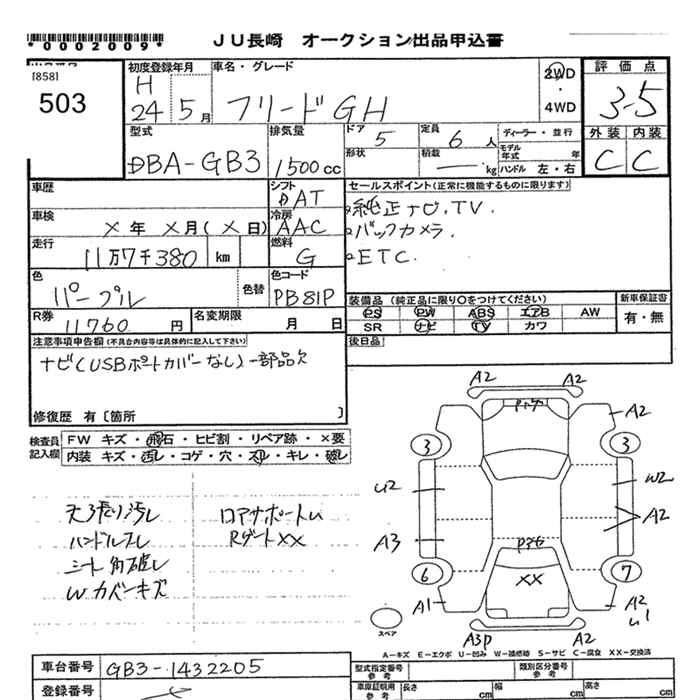 *0002009*
JU長崎 オークション出品申込書
[858]
503
初度登録年月
H
24 5月
車名・グレード
フリードGH
2WD
・
4WD
評価点
3.5
外装 内装
C C
型式
DBA-GB3
排気量
1500cc
ドア 5
形状
定員 6人
積載 kg
ディーラー・並行
モデル年式 年
ハンドル 左・右
車歴
シフト
DAT
セールスポイント(正常に機能するものに限ります)
純正ナビ、TV.
バックカメラ.
ETC.
車検
X年 X月(X日)
冷房
AAC
走行
11万7千380 km
燃料
G
色
パープル
色替
色コード
PB81P
R券
11760円
名変期限
月 日
装備品(純正品に限り○をつけてください)
PS PW ABS エアB AW
SR ナビ TV カワ
新車保証書
有・無
後日品
注意事項申告欄(不具合内容等は具体的に記入して下さい)
ナビ(USBポートカバーなし)一部品欠
修復歴 有〔箇所 〕
検査員記入欄
FW キズ・飛石・ヒビ割・リペア跡・×要
内装 キズ・汚れ・コゲ・穴・スレ・キレ・破レ
天張り汚レ
ハンドルスレ
シート角破レ
Wカバーキズ
ロアサポートU
RゲートXX
A2
A2
A2
3
3
U2
W2
A2
A3
6
7
XX
A1
A2
U1
スペア
A3P
A2
A-キズ E-エクボ U-凹み W-補修跡 S-サビ C-腐食 XX-交換済
車台番号
GB3-1432205
登録番号
型式指定番号
参考
類別区分番号
参考
車庫証明用
参考
長さ cm
幅 cm
高さ cm